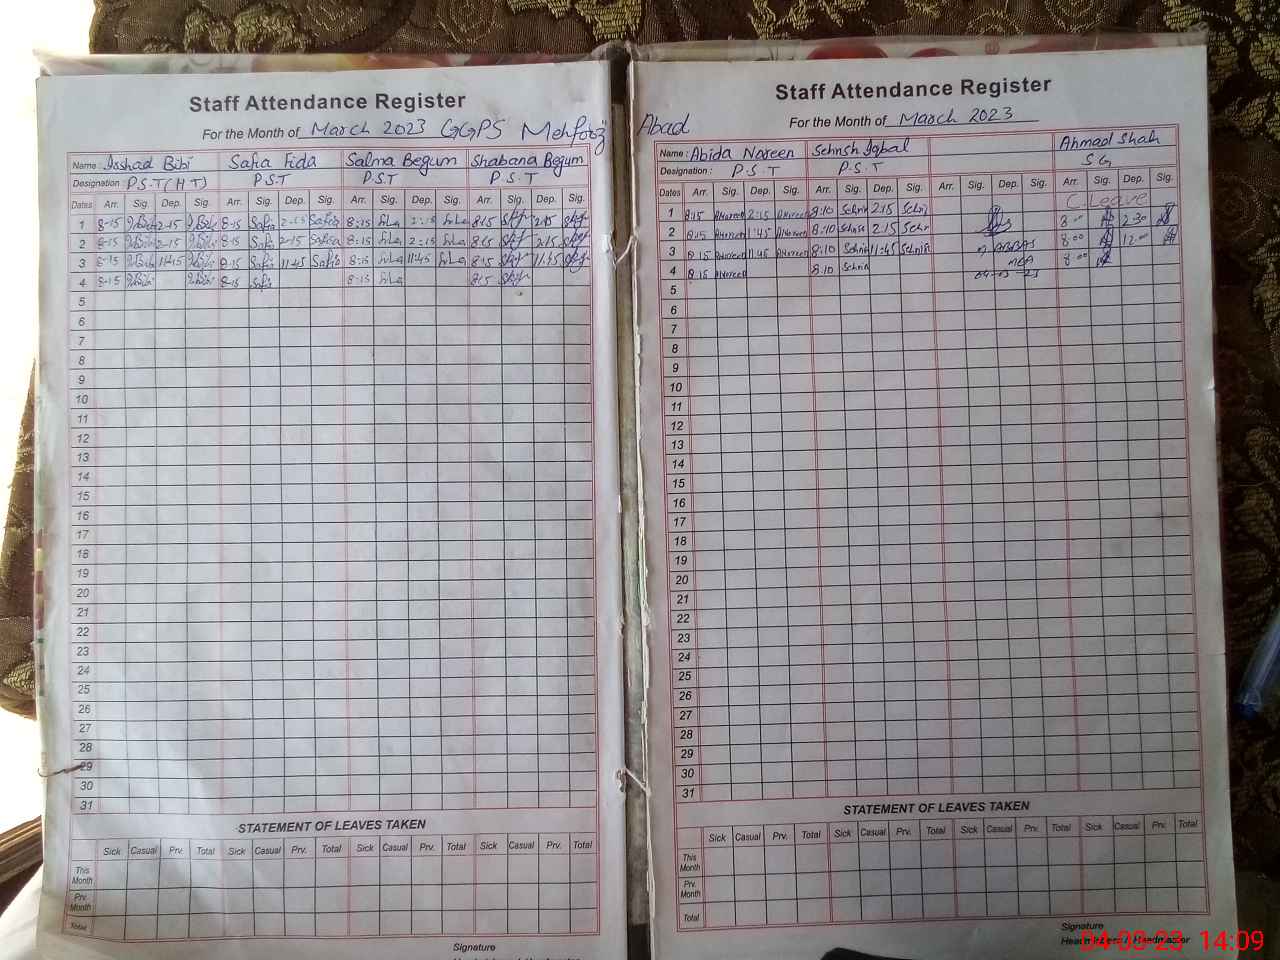 Staff Attendance Register
For the Month of March 2023 GGPS Mehfooz Abad
Name : Irshad Bibi Safia Fida Salma Begum Shabana Begum
Designation : P.S.T (H T) P.S.T P.S.T P.S.T
Dates Arr. Sig. Dep. Sig. Arr. Sig. Dep. Sig. Arr. Sig. Dep. Sig. Arr. Sig. Dep. Sig.
1 8-15 2-15 8-15 Safia 2-15 Safia 8:15 2:15 8:15 2:15
2 8-15 2-15 8-15 Safia 2-15 Safia 8:15 2:15 8:15 2:15
3 8-15 11:45 8-15 Safia 11:45 Safia 8:15 11:45 8:15 11:45
4 8-15 8-15 Safia 8:15 8:15
5
6
7
8
9
10
11
12
13
14
15
16
17
18
19
20
21
22
23
24
25
26
27
28
29
30
31
STATEMENT OF LEAVES TAKEN
Sick Casual Prv. Total Sick Casual Prv. Total Sick Casual Prv. Total Sick Casual Prv. Total
This Month
Prv. Month
Total
Signature
Staff Attendance Register
For the Month of March 2023
Name : Abida Noreen Sehrish Iqbal Ahmad Shah
Designation : P.S.T P.S.T S G
Dates Arr. Sig. Dep. Sig. Arr. Sig. Dep. Sig. Arr. Sig. Dep. Sig. Arr. Sig. Dep. Sig.
1 8:15 ANoreen 2:15 ANoreen 8:10 Sehrish 2:15 Sehrish C. Leave
2 8:15 ANoreen 1:45 ANoreen 8:10 Sehrish 2:15 Sehrish 8:00 2:30
3 8:15 ANoreen 11:45 ANoreen 8:10 Sehrish 11:45 Sehrish ABBAS 8:00 12:00
4 8:15 ANoreen 8:10 Sehrish MEA 8:00
04-03-23
5
6
7
8
9
10
11
12
13
14
15
16
17
18
19
20
21
22
23
24
25
26
27
28
29
30
31
STATEMENT OF LEAVES TAKEN
Sick Casual Prv. Total Sick Casual Prv. Total Sick Casual Prv. Total Sick Casual Prv. Total
This Month
Prv. Month
Total
Signature
Headmistress / Headmaster
04-03-23 14:09